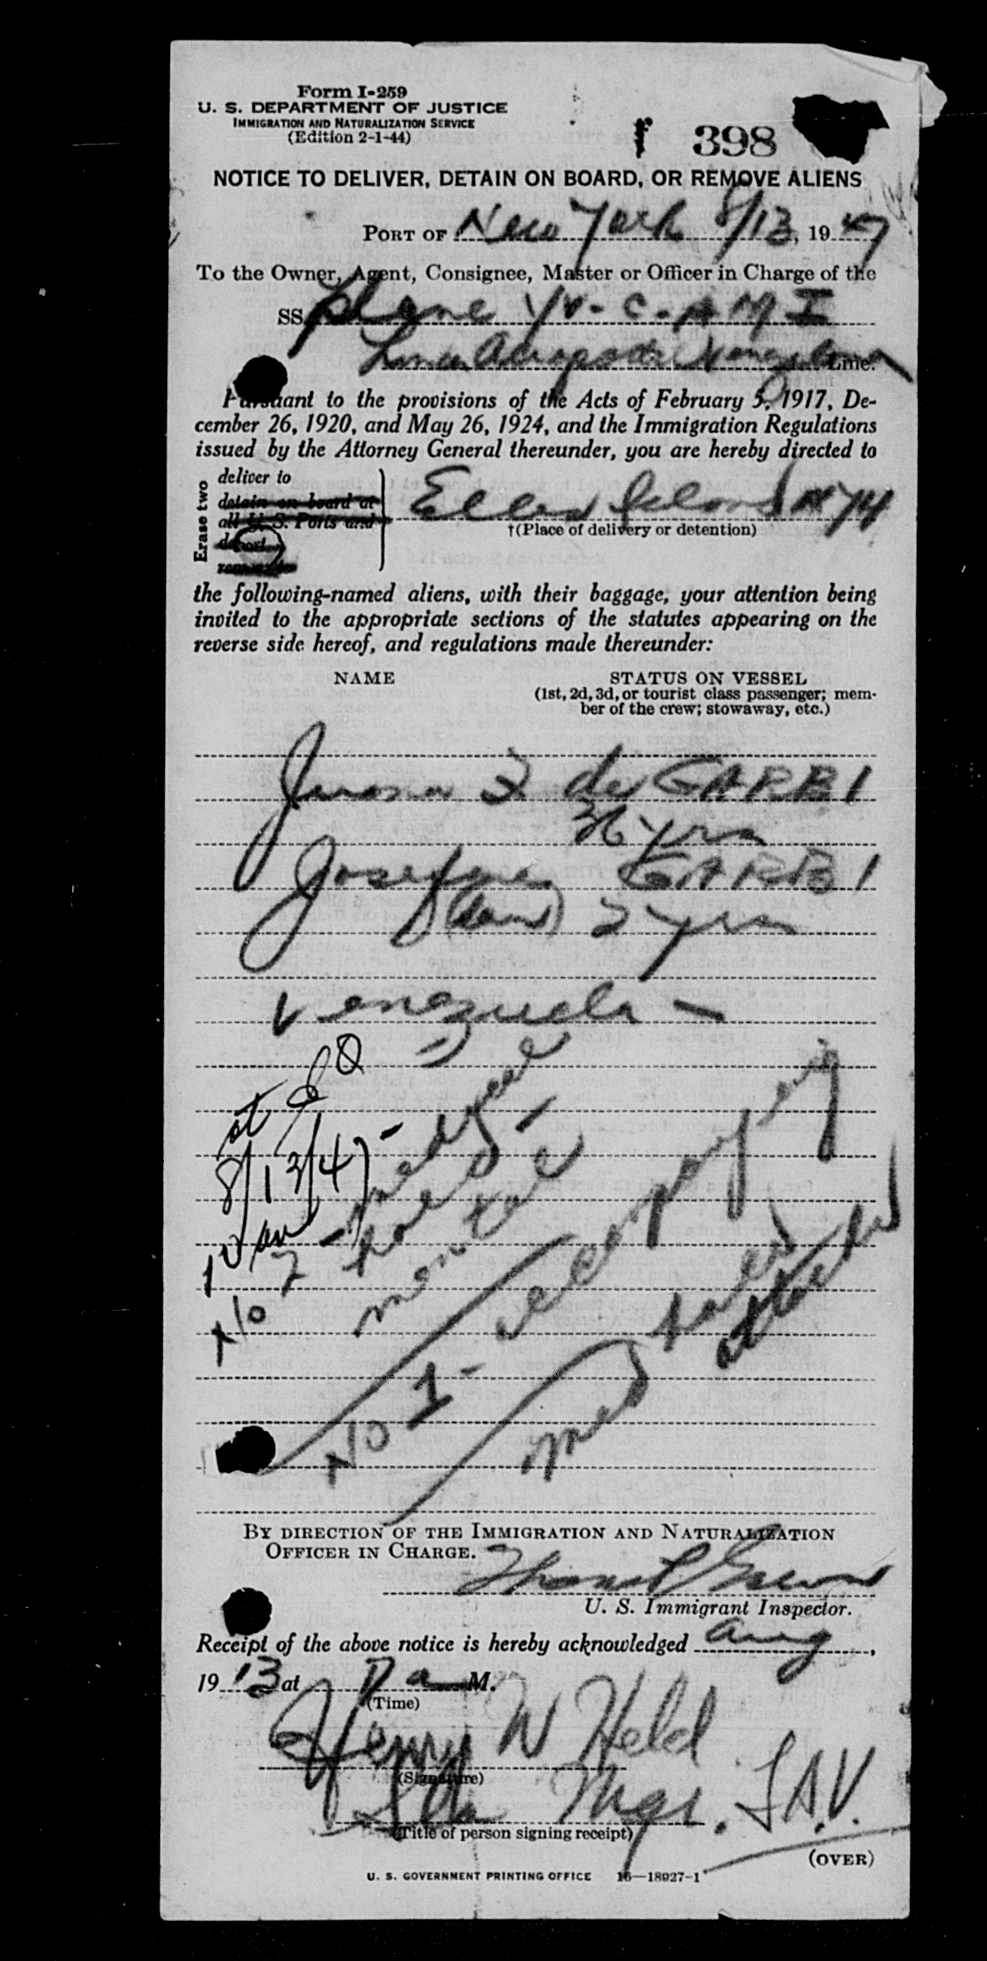 Form I-259
U. S. DEPARTMENT OF JUSTICE
IMMIGRATION AND NATURALIZATION SERVICE
(Edition 2-1-44)
398
NOTICE TO DELIVER, DETAIN ON BOARD, OR REMOVE ALIENS
PORT OF New York 8/13, 1947
To the Owner, Agent, Consignee, Master or Officer in Charge of the
SS plane YV-C-AMI
Linea Aeropostal Venezolana Line.
Pursuant to the provisions of the Acts of February 5, 1917, De-
cember 26, 1920, and May 26, 1924, and the Immigration Regulations
issued by the Attorney General thereunder, you are hereby directed to
Erase two
deliver to
detain on board at
all U. S. Ports and
deport
Ellis Island
†(Place of delivery or detention)
the following-named aliens, with their baggage, your attention being
invited to the appropriate sections of the statutes appearing on the
reverse side hereof, and regulations made thereunder:
NAME
STATUS ON VESSEL
(1st, 2d, 3d, or tourist class passenger; mem-
ber of the crew; stowaway, etc.)
Juana de GARBI
36 yrs
Josefina GARBI
(dau) 2 yrs
Venezuela -
at
8/13/47
No 2 - medical
hold -
mental
No 1 - accompanying
med hold
By DIRECTION OF THE IMMIGRATION AND NATURALIZATION
OFFICER IN CHARGE.
U. S. Immigrant Inspector.
Receipt of the above notice is hereby acknowledged Aug,
19 13 at 7 a M.
(Time)
Henry W Held
(Signature)
Mgr. L.A.V.
(Title of person signing receipt)
(OVER)
U. S. GOVERNMENT PRINTING OFFICE 16—18927-1